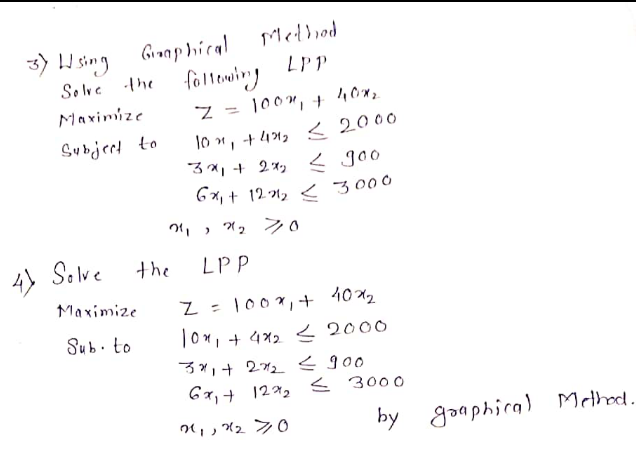 3) Using Graphical Method
Solve the following LPP
Maximize Z = 100x₁ + 40x₂
Subject to 10x₁ + 4x₂ ≤ 2000
3x₁ + 2x₂ ≤ 900
6x₁ + 12x₂ ≤ 3000
x₁ , x₂ ≥ 0
4) Solve the LPP
Maximize Z = 100x₁ + 40x₂
Sub. to 10x₁ + 4x₂ ≤ 2000
3x₁ + 2x₂ ≤ 900
6x₁ + 12x₂ ≤ 3000
x₁ , x₂ ≥ 0 by graphical Method.